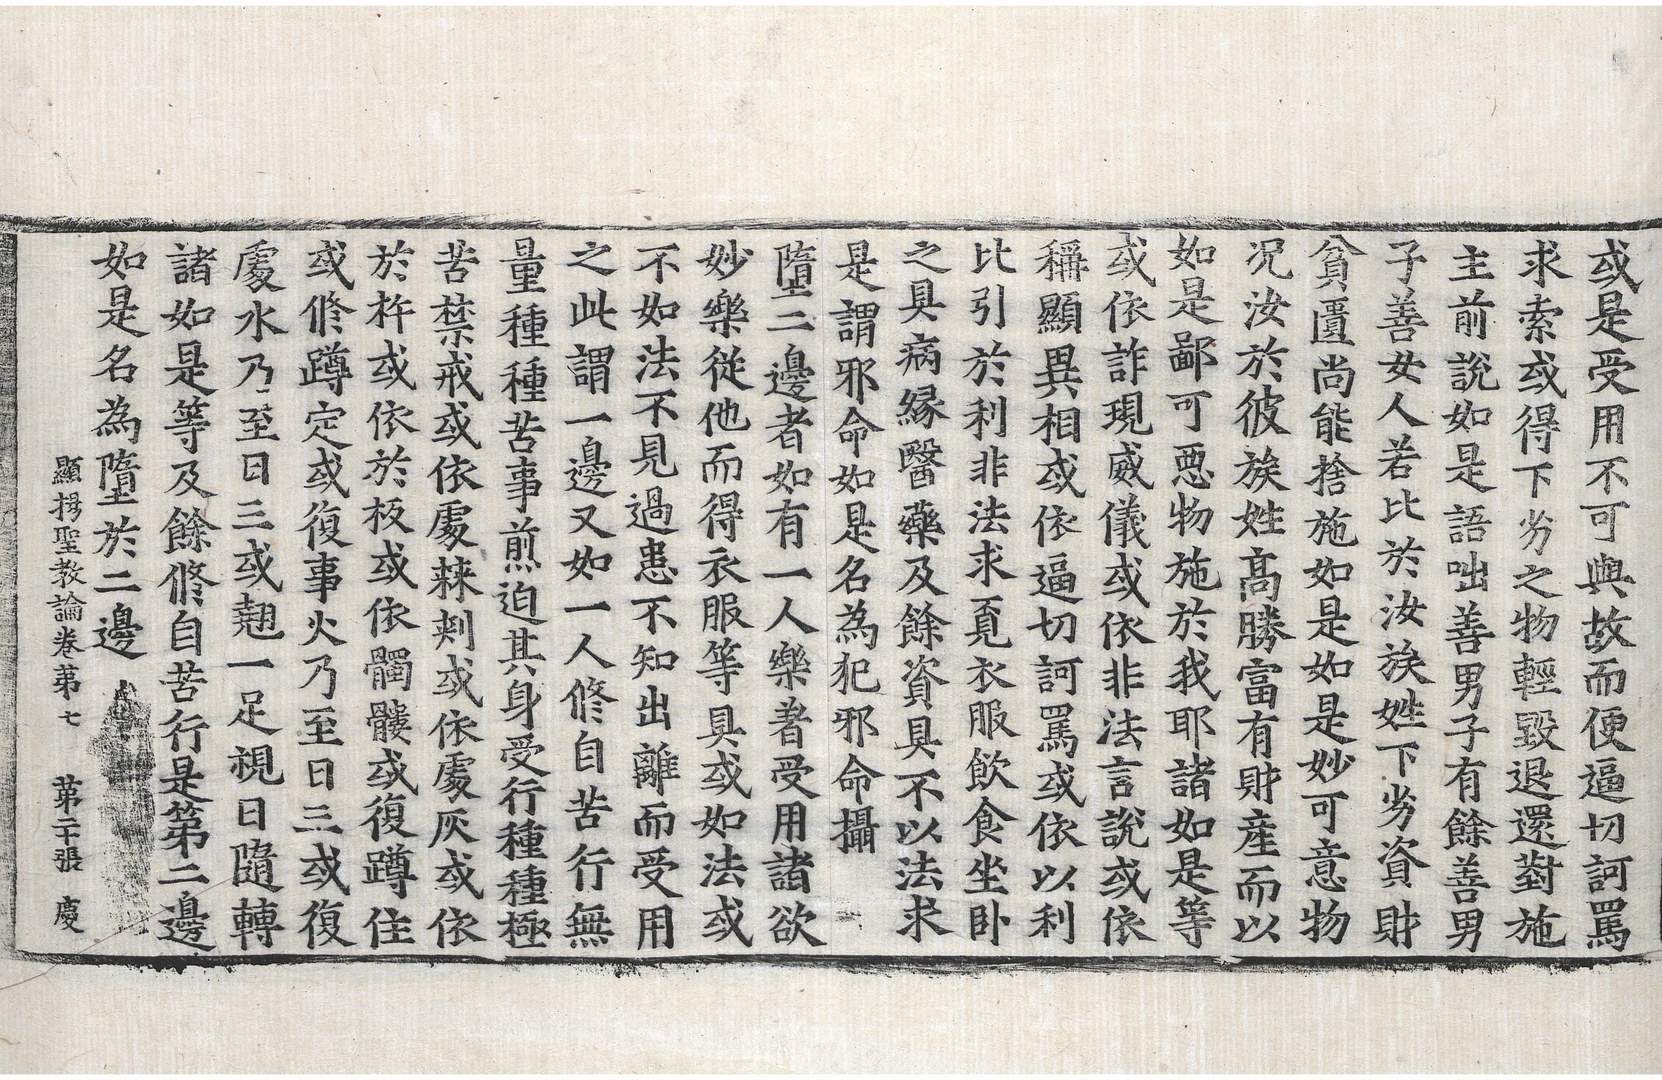 或是受用不可與故而便逼切訶罵
求索或得下劣之物輕毀退還對施
主前說如是語咄善男子有餘善男
子善女人若比於汝族姓下劣資財
貧匱尚能捨施如是如是妙可意物
況汝於彼族姓高勝富有財產而以
如是鄙可惡物施於我耶諸如是等
或依詐現威儀或依非法言說或依
稱顯異相或依逼切訶罵或依以利
比引於利非法求覓衣服飲食坐卧
之具病緣醫藥及餘資具不以法求
是謂邪命如是名為犯邪命攝
墮二邊者如有一人樂著受用諸欲
妙樂從他而得衣服等具或如法或
不如法不見過患不知出離而受用
之此謂一邊又如一人修自苦行無
量種種苦事煎迫其身受行種種極
苦禁戒或依處棘刺或依處灰或依
於杵或依於板或依髑髏或復蹲住
或修蹲定或復事火乃至日三或復
處水乃至日三或翹一足視日隨轉
諸如是等及餘修自苦行是第二邊
如是名為墮於二邊
顯揚聖教論卷第七 第二十張 慶